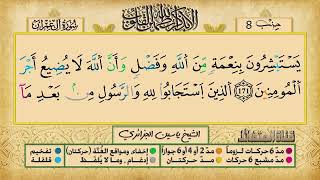 سُورَةُ آلِ عِمْرَان
حِزْب 8
يَسْتَبْشِرُونَ بِنِعْمَةٍ مِّنَ ٱللَّهِ وَفَضْلٍ وَأَنَّ ٱللَّهَ لَا يُضِيعُ أَجْرَ
ٱلْمُؤْمِنِينَ ﴿171﴾ ٱلَّذِينَ ٱسْتَجَابُوا۟ لِلَّهِ وَٱلرَّسُولِ مِنۢ بَعْدِ مَآ
الشيخ ياسين الجزائري
مدّ 6 حركات لزوماً مدّ 2 أو 4 أو 6 جوازاً إخفاء ومواقع الغُنَّة (حركتان) تفخيم
مدّ مشبع 6 حركات مدّ حركتان إدغام، وما لا يُلفظ قلقلة